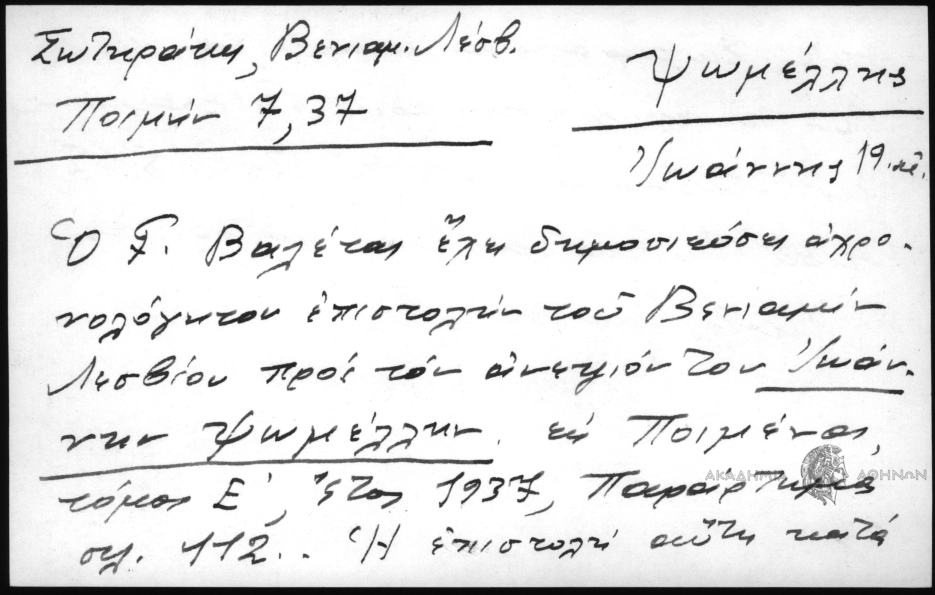 Σωτηράκης, Βενιαμ. Λέσβ.
Ποιμήν 7, 37
Ψωμέλλης
Ἰωάννης 19. αἰ.
Ὁ Γ. Βαλέτας ἔχει δημοσιεύσει ἀχρο-
νολόγητον ἐπιστολήν τοῦ Βενιαμίν
Λεσβίου πρός τόν ἀνεψιόν του Ἰωάν-
νην Ψωμέλλην. εἰς Ποιμένος,
τόμος Ε', ἔτος 1937, Παράρτημα
σελ. 112.. Ἡ ἐπιστολή αὕτη κατά
ΑΚΑΔΗΜΙΑ ΑΘΗΝΩΝ